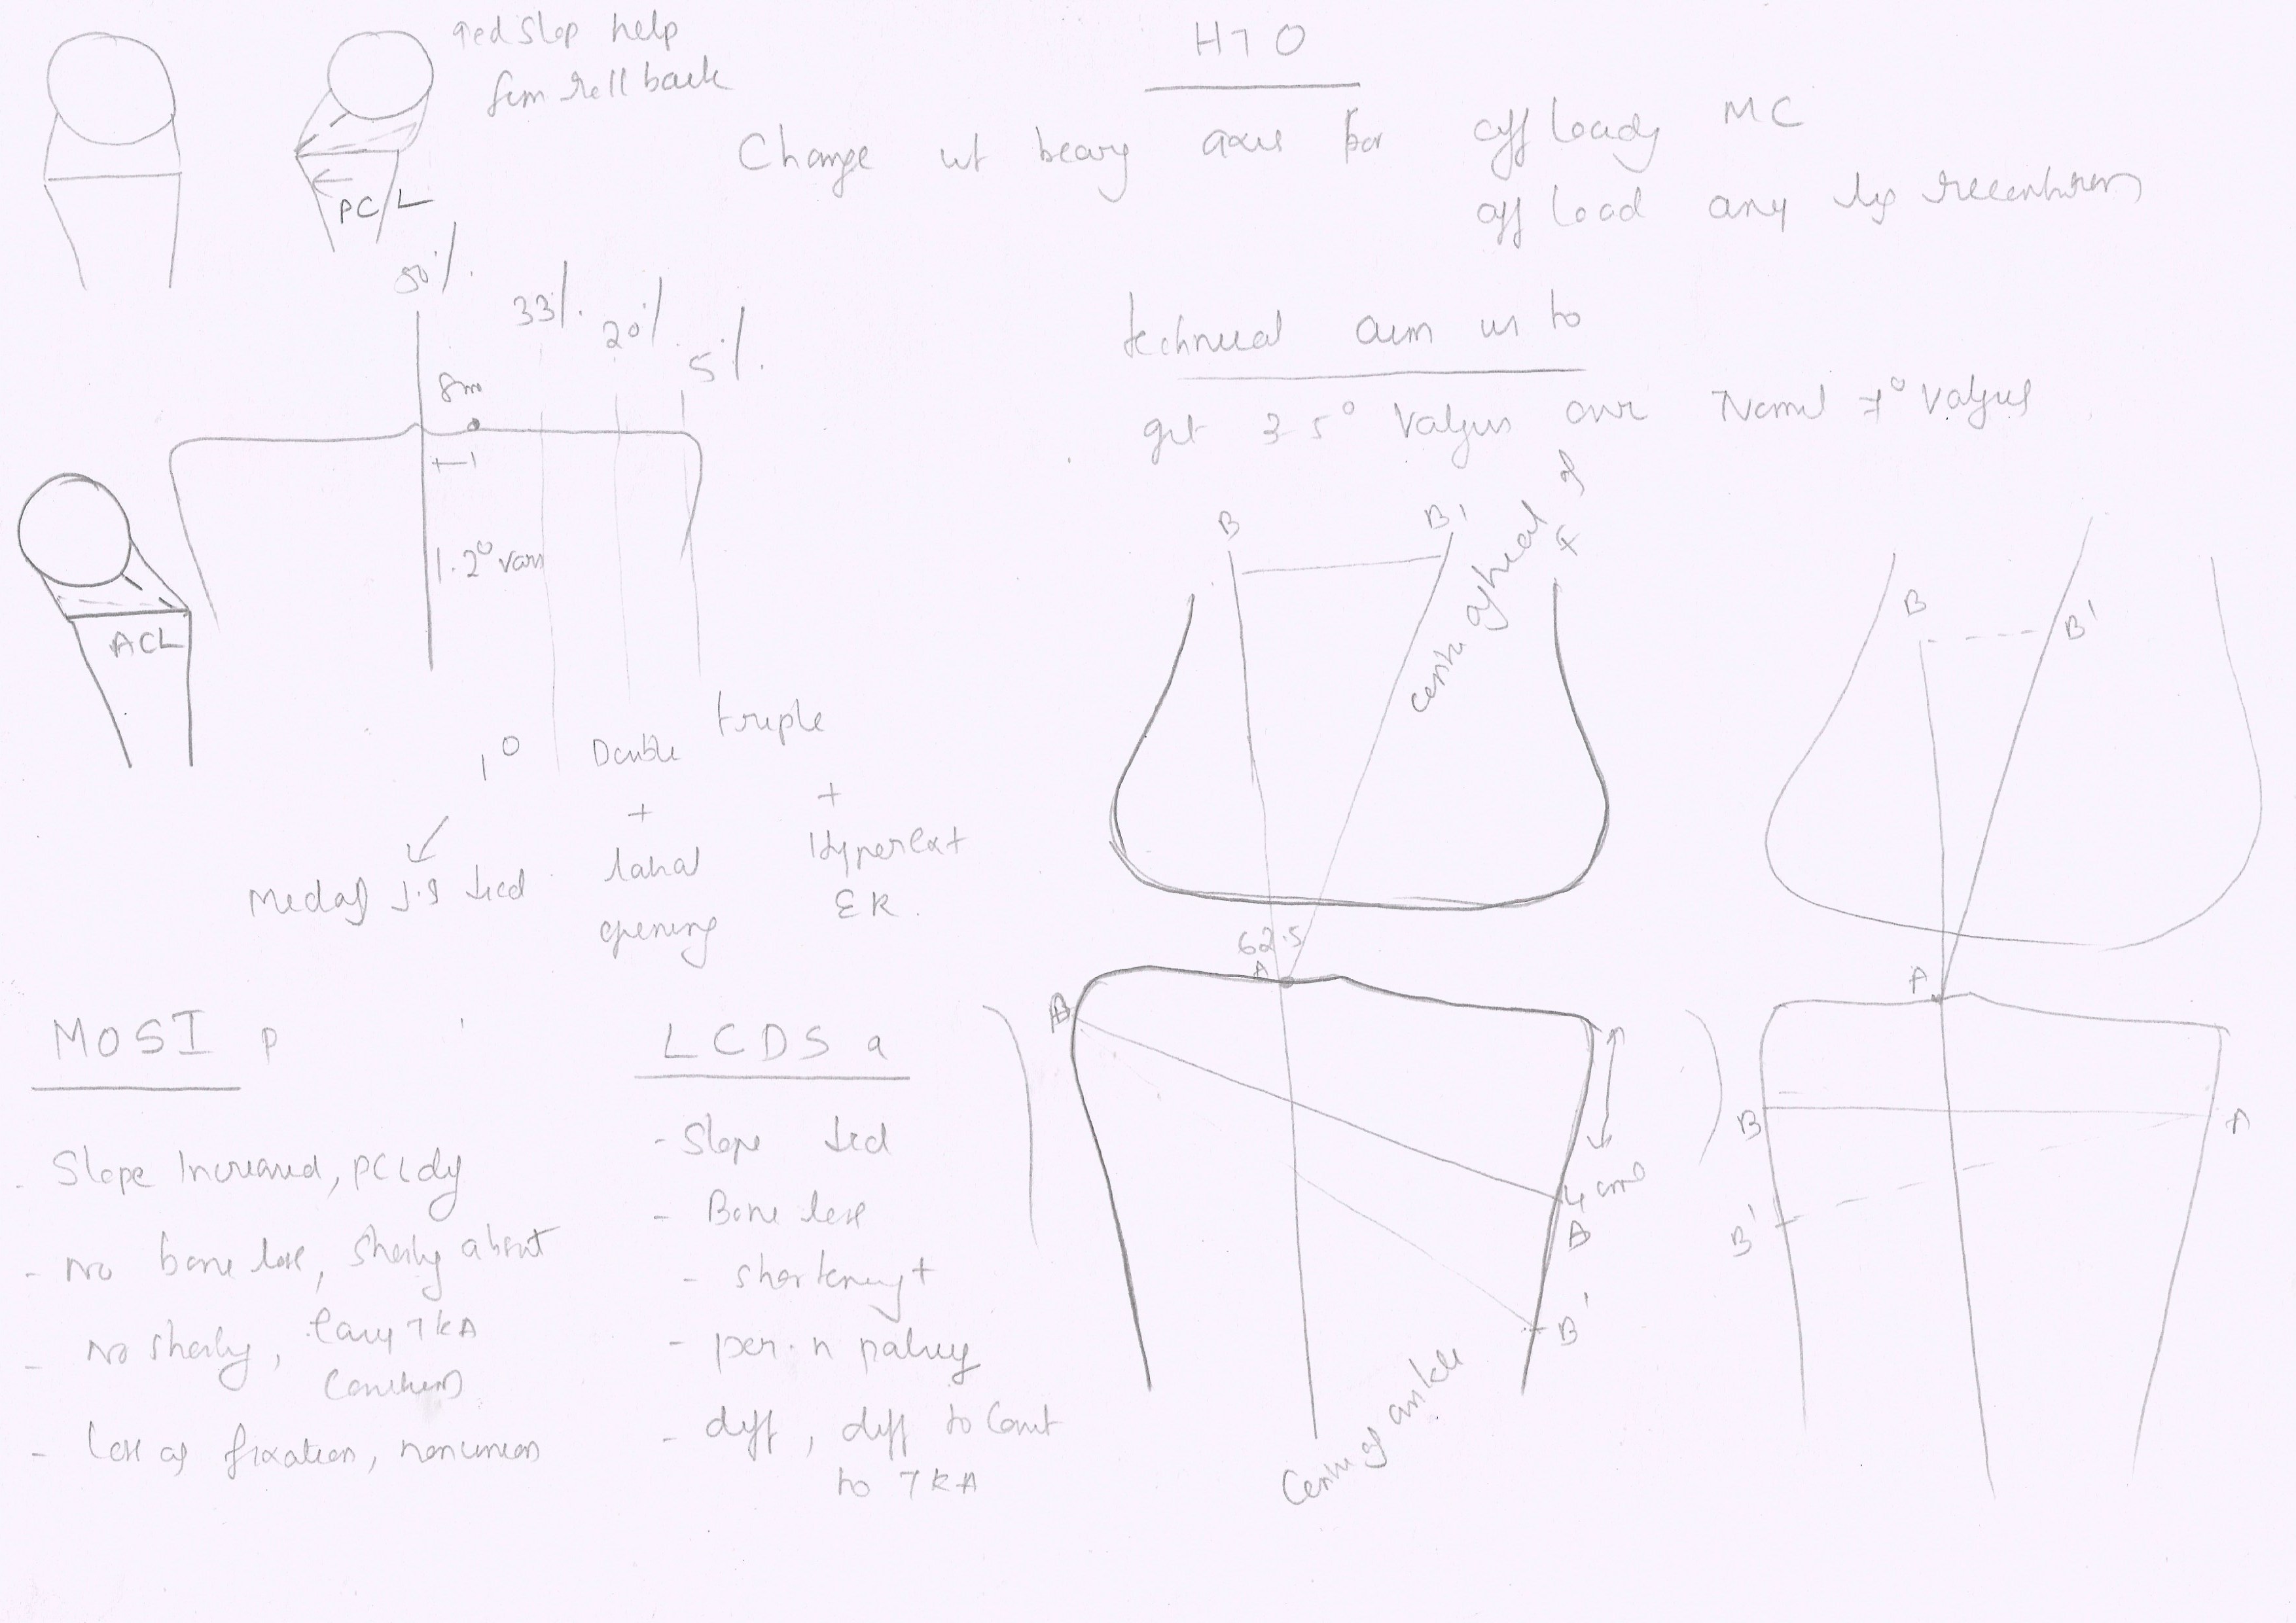 ↑ed Slop help
fem roll back
PCL
HTO
Change wt bearing axis for off loading MC
off load any lig reconstruction
50%
33%
20%
5%
8mm
1.2° varus
technical aim is to
get 3-5° Valgus over Normal 7° Valgus
ACL
1° Double triple
+ +
Medial J.S ↓ced
lateral opening
Hyperext
ER
B B'
centre of head of F
62.5
A
B
4 cm
A
B'
Centre of ankle
B B'
A
B A
B'
MOSI p
- Slope Increased, PCL dy
- No bone loss, Shortening absent
- No shortening, Easy TKA Conversion
- Loss of fixation, nonunion
LCDS a
- Slope ↓ced
- Bone loss
- shortening +
- per. n palsy
- diff, diff to Convt
to TKA